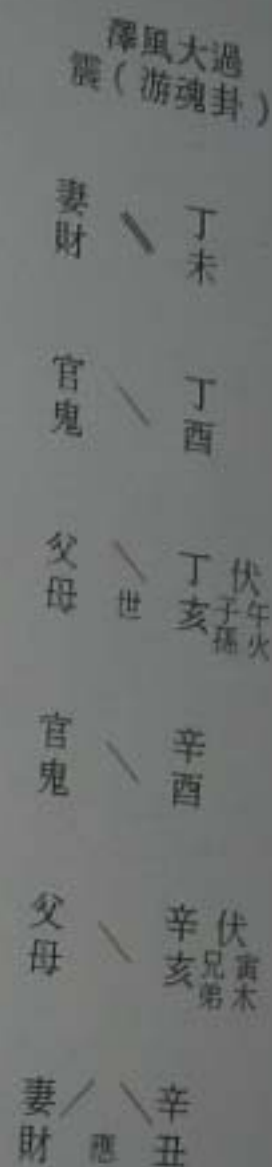 澤風大過
震（游魂卦）
妻財 丁未
官鬼 丁酉
父母 世 丁亥 伏 午火子孫
官鬼 辛酉
父母 辛亥 伏 寅木兄弟
妻財 應 辛丑